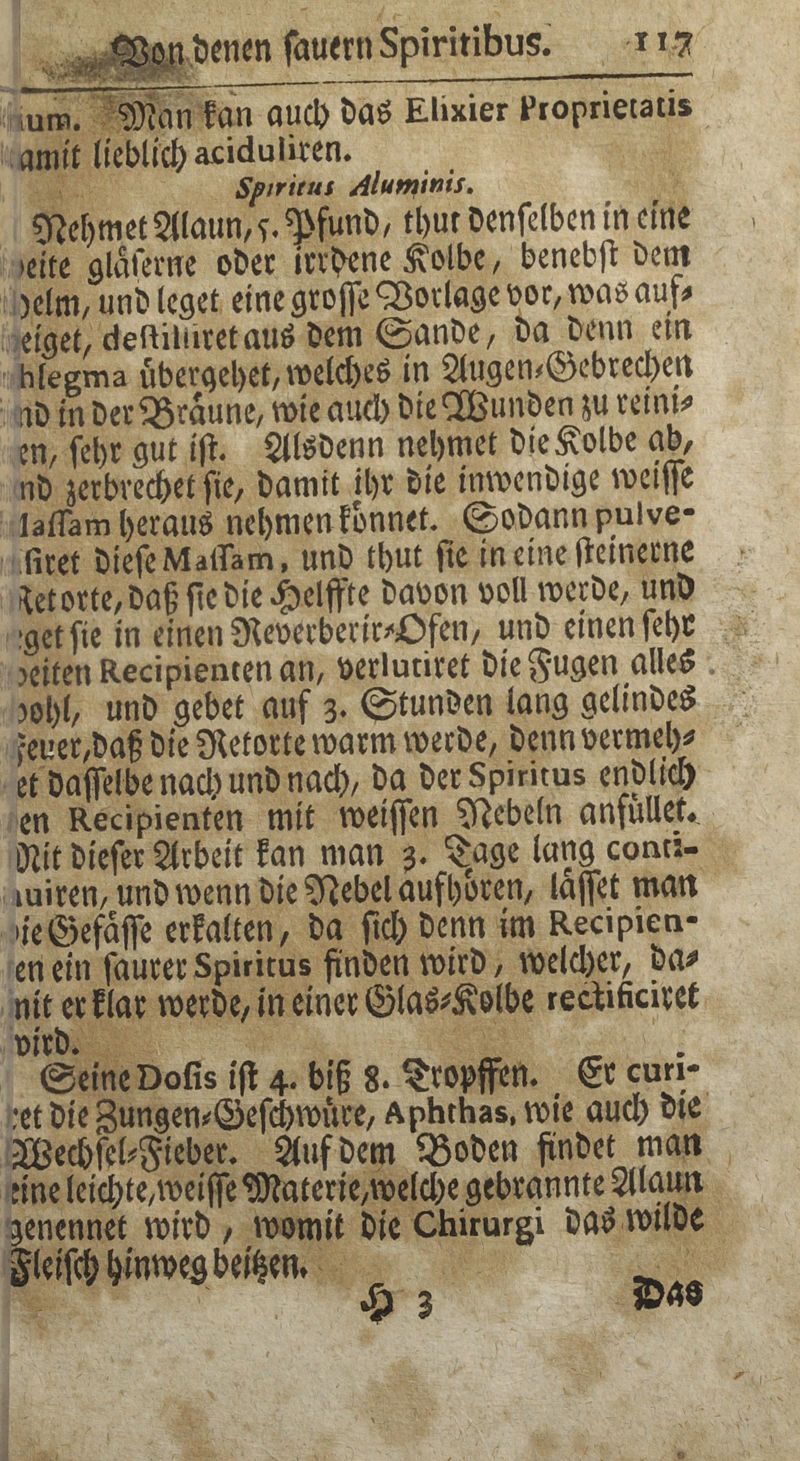 Von denen ſauern Spiritibus. 117
um. Man kan auch das Elixier Proprietatis
amit lieblich aciduliren.
Spiritus Aluminis.
Nehmet Alaun, 5. Pfund, thut denſelben in eine
eite gläſerne oder irrdene Kolbe, benebſt dem
helm, und leget eine groſſe Vorlage vor, was auf-
eiget, deſtilliret aus dem Sande, da denn ein
hlegma übergehet, welches in Augen-Gebrechen
nd in der Bräune, wie auch die Wunden zu reini-
en, ſehr gut iſt. Alsdenn nehmet die Kolbe ab,
nd zerbrechet ſie, damit ihr die inwendige weiſſe
laſſam heraus nehmen könnet. Sodann pulve-
ſiret dieſe Maſſam, und thut ſie in eine ſteinerne
Retorte, daß ſie die Helffte davon voll werde, und
get ſie in einen Reverberir-Ofen, und einen ſehr
eiten Recipienten an, verlutiret die Fugen alles
ohl, und gebet auf 3. Stunden lang gelindes
Feuer, daß die Retorte warm werde, denn vermeh-
et daſſelbe nach und nach, da der Spiritus endlich
en Recipienten mit weiſſen Nebeln anfüllet.
Mit dieſer Arbeit kan man 3. Tage lang conti-
nuiren, und wenn die Nebel aufhören, läſſet man
ie Gefäſſe erkalten, da ſich denn im Recipien-
en ein ſaurer Spiritus finden wird, welcher, da-
mit er klar werde, in einer Glas-Kolbe rectificiret
wird.
Seine Doſis iſt 4. biß 8. Tropffen. Er curi-
ret die Zungen-Geſchwüre, Aphthas, wie auch die
Wechſel-Fieber. Auf dem Boden findet man
eine leichte, weiſſe Materie, welche gebrannte Alaun
genennet wird, womit die Chirurgi das wilde
Fleiſch hinweg beitzen.
H 3 Das